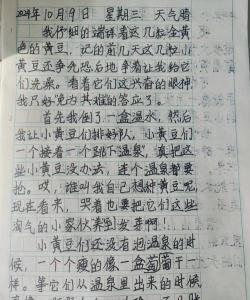 2024年10月9日 星期三 天气晴
我仔细的端详着这几粒金黄
色的黄豆,记的前几天这几粒小
黄豆还争先恐后地争着让我给它
们洗澡。看着它们这兴奋的眼神
我只好 的答应了。
首先我倒了一盆温水,然后
我让小黄豆们排好队,小黄豆们
一个接着一个跳下温泉,真把这
些小黄豆没办法,连个温泉都要
抢。哎,谁叫我自己想种黄豆呢,
现在看来,哭着也要把它们这些
淘气的小家伙养到发芽啊!
小黄豆们还没有泡温泉的时
候,一个个瘦的像一盒葡萄干一
样。等它们从温泉里出来的时候